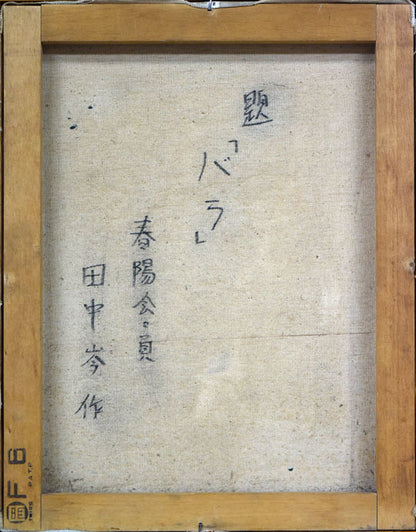 題
「バラ」
春陽会々員
田中岑作
F 8